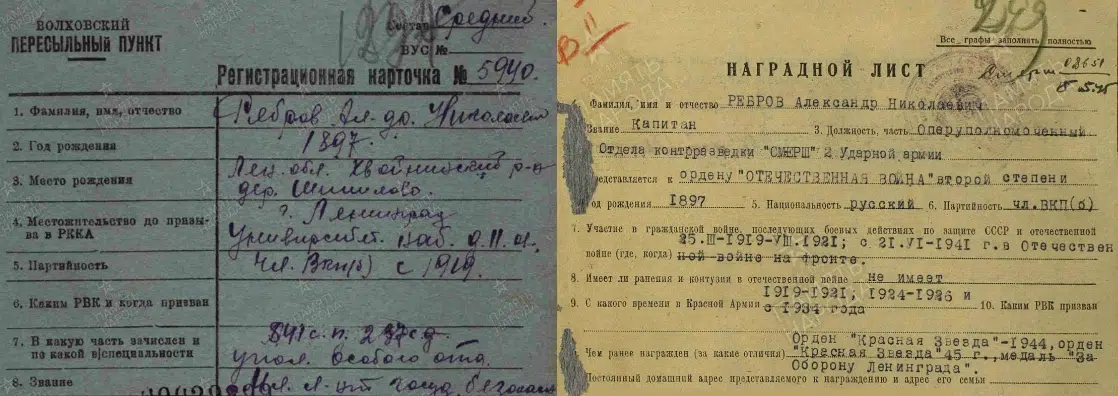 ВОЛХОВСКИЙ
ПЕРЕСЫЛЬНЫЙ ПУНКТ
Состав Средний
ВУС №
Регистрационная карточка № 5940.
1. Фамилия, имя, отчество Ребров Ал-др. Николаевич
2. Год рождения 1897.
3. Место рождения Лен. обл. Хвойнинский р-н
дер. Шипилово.
4. Местожительство до призы-
ва в РККА г. Ленинград
Университет. наб.
5. Партийность Чл. ВКП(б) с 1919.
6. Каким РВК и когда призван
7. В какую часть зачислен и
по какой в/специальности 841 с.п. 237 с.д.
упол. Особого отд.
8. Звание л-нт госуд. безопасн
В II
249
Все графы заполнять полностью
НАГРАДНОЙ ЛИСТ
Смерш 02651
8 5.45
Фамилия, имя и отчество РЕБРОВ Александр Николаевич
Звание Капитан 3. Должность, часть Оперуполномоченный
Отдела контрразведки "СМЕРШ" 2 Ударной армии
редставляется к ордену "ОТЕЧЕСТВЕННАЯ ВОЙНА" второй степени
од рождения 1897 5. Национальность русский 6. Партийность чл.ВКП(б)
7. Участие в гражданской войне, последующих боевых действиях по защите СССР и отечественной
25.III-1919-VIII.1921; с 21.VI-1941 г. в Отечествен
войне (где, когда) ной войне на фронте.
8. Имеет ли ранения и контузии в отечественной войне не имеет
1919-1921; 1924-1926 и
9. С какого времени в Красной Армии с 1934 года 10. Каким РВК призван
Орден "Красная Звезда"-1944, орден
Чем ранее награжден (за какие отличия) "Красная Звезда" 45 г., медаль "За
Оборону Ленинграда".
Постоянный домашний адрес представляемого к награждению и адрес его семьи